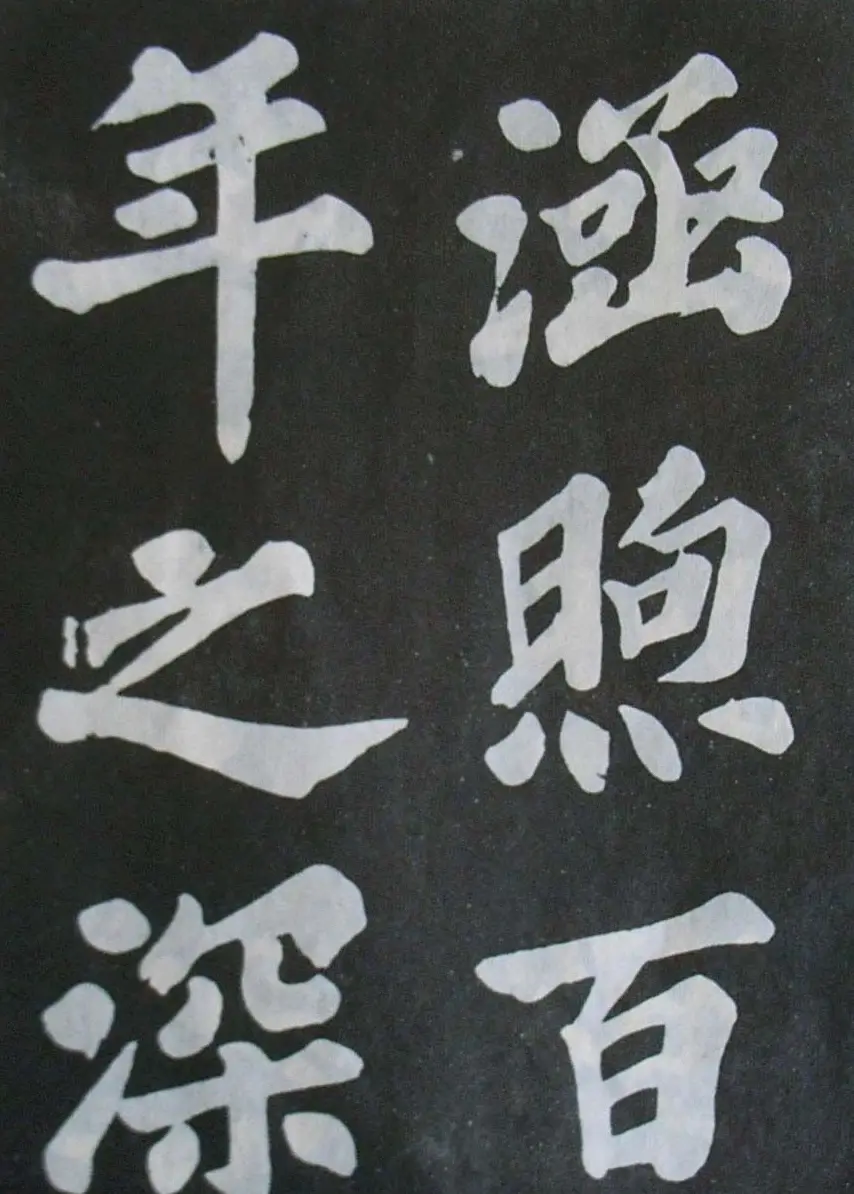 涵煦百
年之深